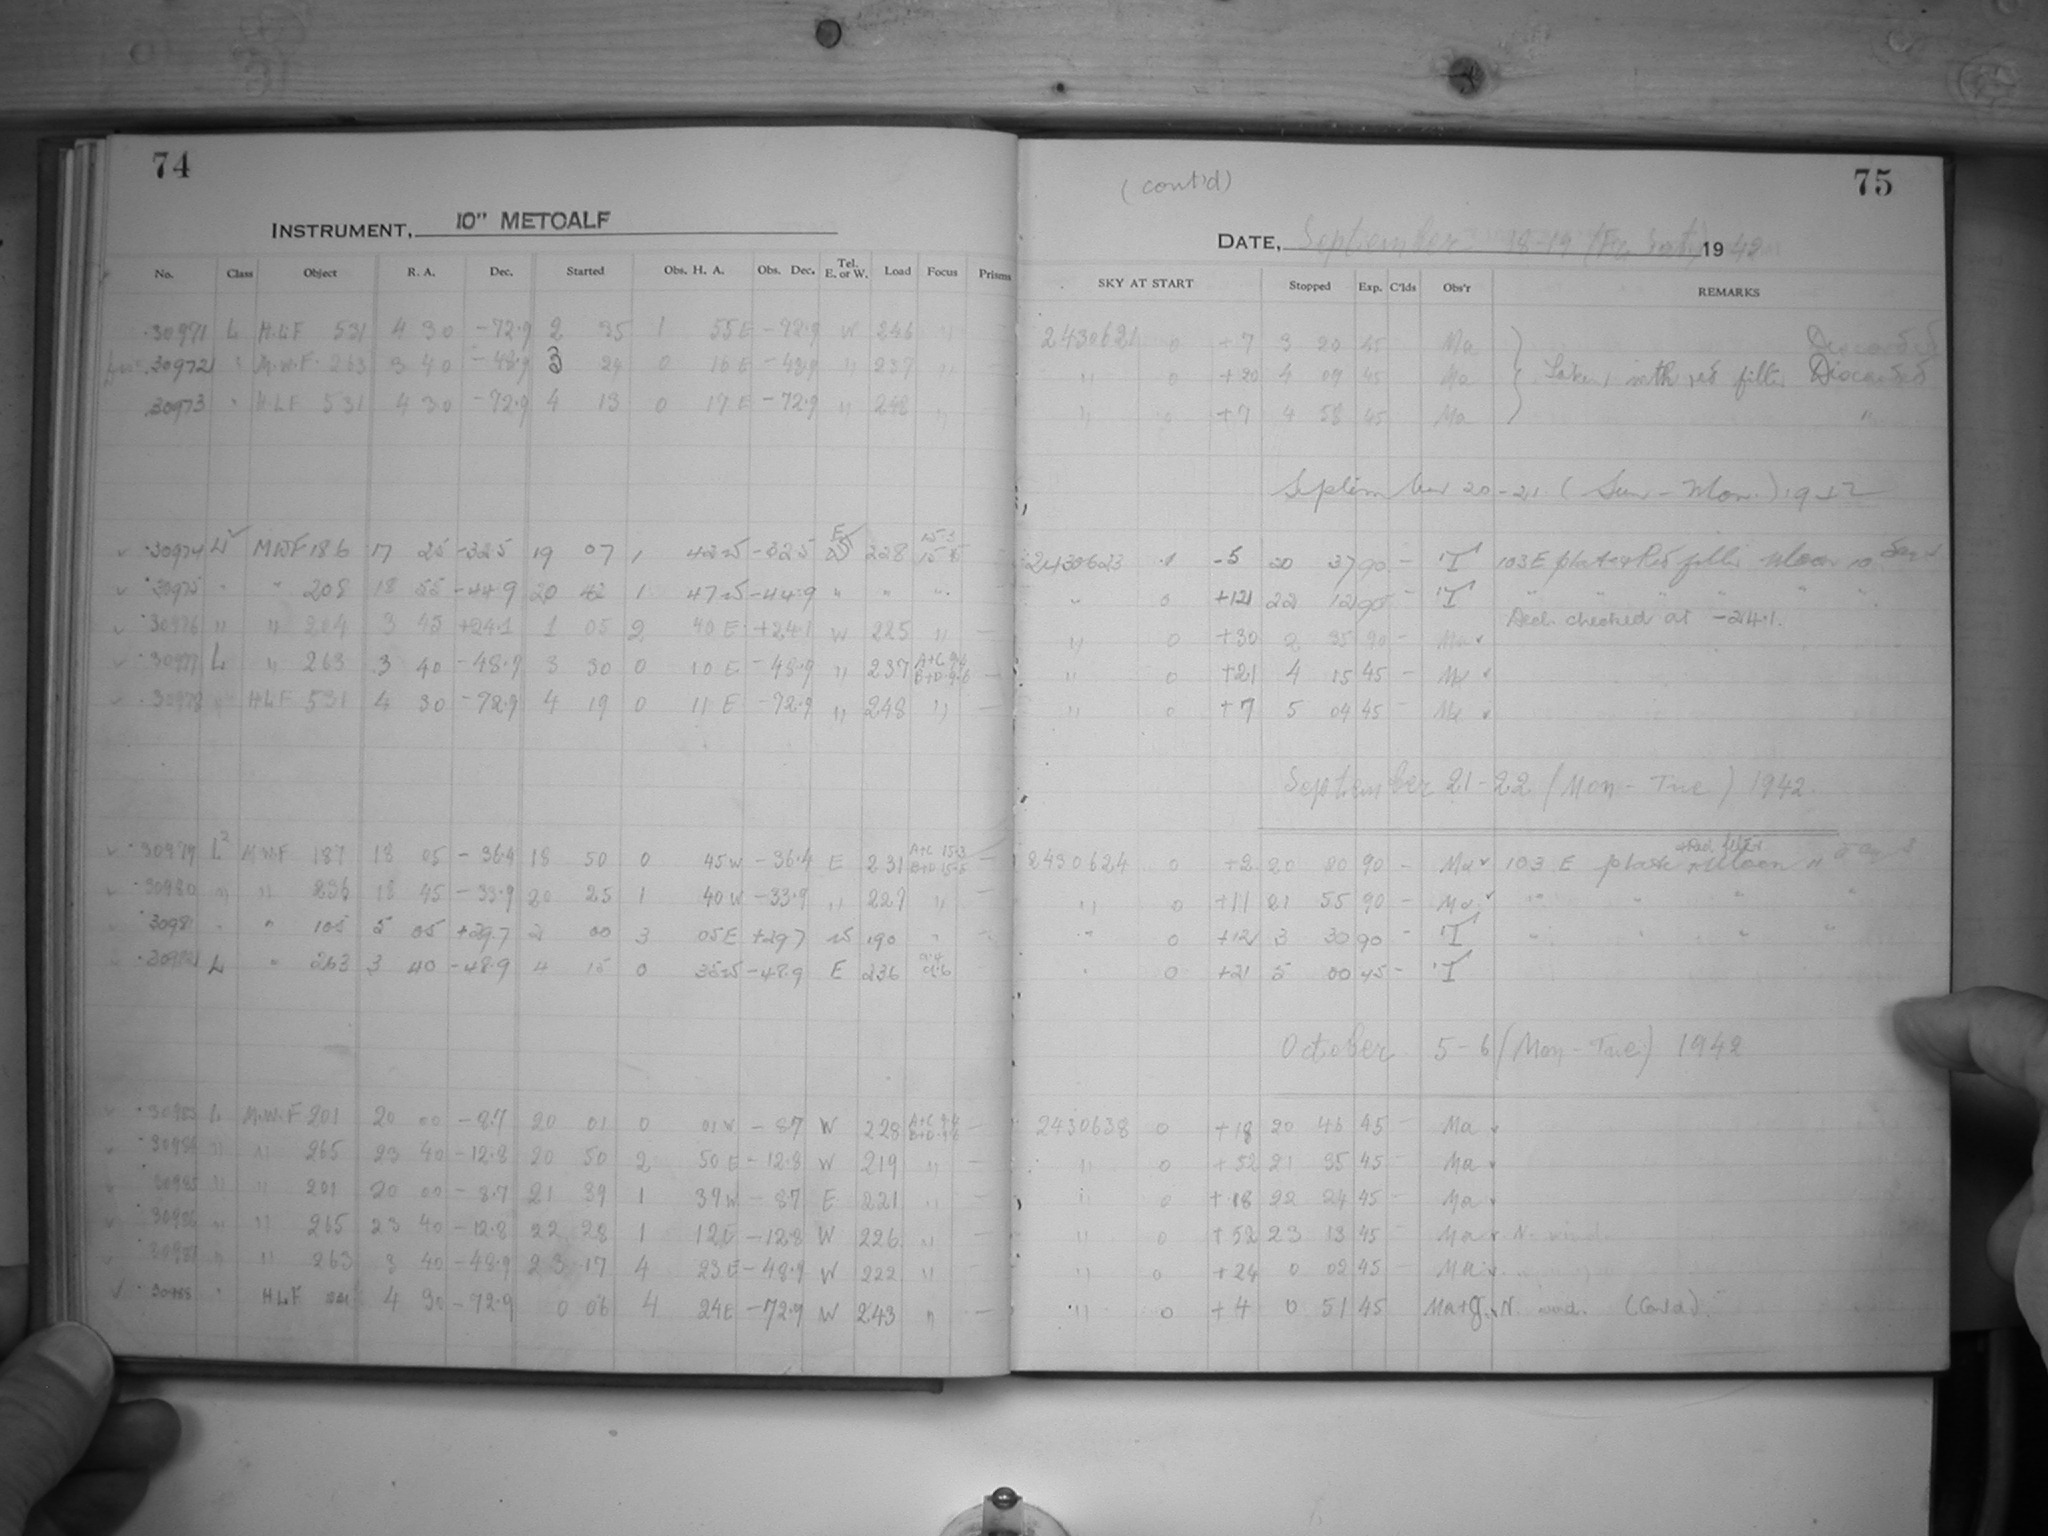 74
INSTRUMENT, 10" METCALF
No. Class Object R. A. Dec. Started Obs. H. A. Obs. Dec. Tel. E. or W. Load Focus Prisms
30971 L H.L.F 531 4 30 -72.9 2 35 1 55 E -72.9 W 246 "
30972 " M.W.F. 263 3 40 -48.9 3 24 0 16 E -48.9 " 237 "
30973 " H.L.F 531 4 30 -72.9 4 13 0 17 E -72.9 " 248 "
30974 MWF 186 17 25 -32.5 19 07 1 42 W -32.5 E 228
30975 " " 208 18 55 -44.9 20 42 1 47 W -44.9 " " "
30976 " " 204 3 45 +24.1 1 05 2 40 E +24.1 W 225 " —
30977 L " 263 3 40 -48.9 3 30 0 10 E -48.9 " 237 A+C 9.4 B+D 9.6 —
30978 " H.L.F 531 4 30 -72.9 4 19 0 11 E -72.9 " 248 " —
30979 L2 M.W.F 187 18 05 -36.4 18 50 0 45 W -36.4 E 231 A+C 15.3 B+D 15.5 —
30980 " " 236 18 45 -33.9 20 25 1 40 W -33.9 " 227 " —
30981 " " 105 5 05 +29.7 2 00 3 05 E +29.7 W 190 "
30982 L " 263 3 40 -48.9 4 15 0 35 W -48.9 E 236 9.4 9.6
30983 L M.W.F 201 20 00 -8.7 20 01 0 01 W -8.7 W 228 A+C 9.4 B+D 9.6 —
30984 " " 265 23 40 -12.8 20 50 2 50 E -12.8 W 219 " —
30985 " " 201 20 00 -8.7 21 39 1 39 W -8.7 E 221 " —
30986 " " 265 23 40 -12.8 22 28 1 12 E -12.8 W 226 " —
30987 " " 263 3 40 -48.9 23 17 4 23 E -48.9 W 222 " —
30988 " H.L.F 4 30 -72.9 0 06 4 24 E -72.9 W 243 " —
(cont'd)
75
DATE, September 18-19 (Fri-Sat.) 1942
SKY AT START Stopped Exp. C'lds Obs'r REMARKS
2430621 0 +7 3 20 45 Ma Discarded
" 0 +20 4 09 45 Ma Taken with red filter Discarded
" 0 +7 4 58 45 Ma "
September 20-21 (Sun-Mon.) 1942
2430623 1 -5 20 37 90 — T 103E plate + Red filter Moon 10 days
" 0 +12 22 12 90 — T " " " " "
" 0 +30 2 35 90 — Ma Decl. checked at -24.1.
" 0 +21 4 15 45 — Ma
" 0 +7 5 04 45 — Ma
September 21-22 (Mon-Tue) 1942.
2430624 0 +2 20 20 90 — Ma 103 E plate + Red filter Moon 11 days
" 0 +11 21 55 90 — Ma " " " "
" 0 +12 3 30 90 — T " " " "
" 0 +21 5 00 45 — T
October 5-6 (Mon-Tue) 1942
2430638 0 +18 20 46 45 — Ma
" 0 +52 21 35 45 — Ma
" 0 +18 22 24 45 — Ma
" 0 +52 23 13 45 — Ma N. wind.
" 0 +24 0 02 45 — Ma
" 0 +4 0 51 45 Ma+J. N. wind. (Cold).